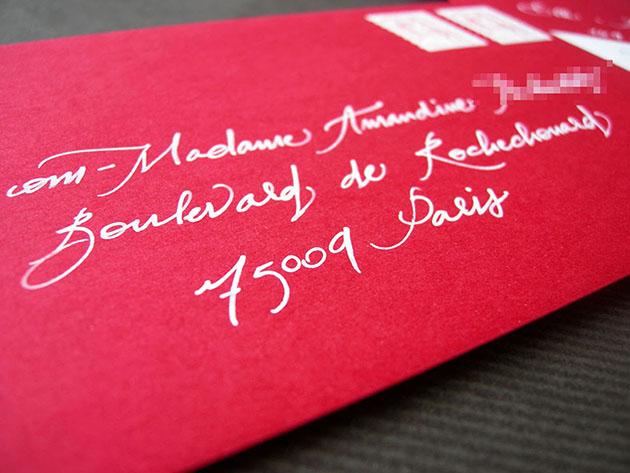 Madame Amandine
Boulevard de Rochechouard
75009 Paris